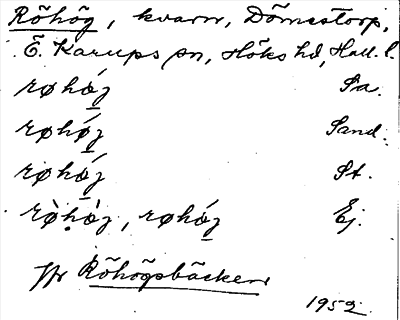 Rõhõg, kvarn, Dõmestorp,
Ö. Karups sn, Höks hd, Hall. l.
røhǿz Sa.
røhǿz Sand.
røhǿz St.
rø̀hø̣̀z, røhǿz Ej.
Jfr Rõhõgsbäcken
1952